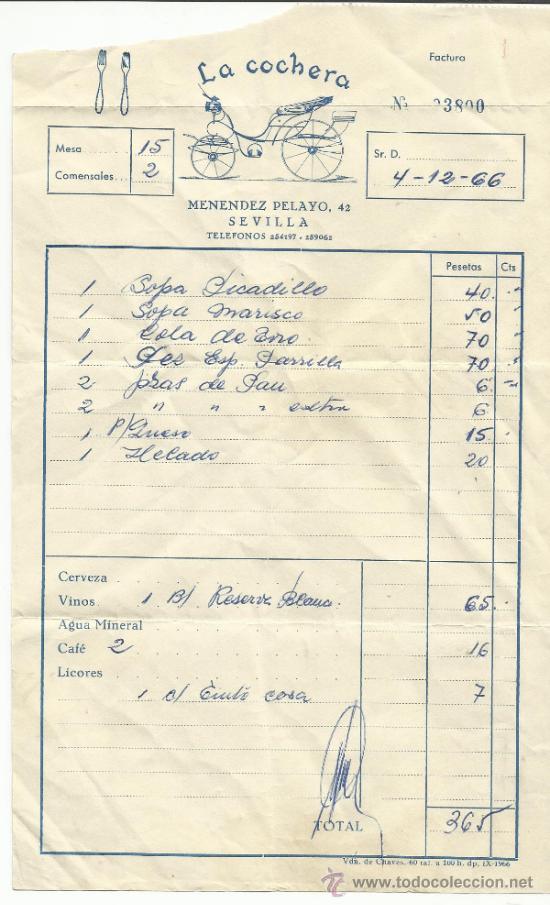 La cochera
Factura
Nº 23800
Mesa 15
Comensales... 2
Sr. D.
4-12-66
MENENDEZ PELAYO, 42
SEVILLA
TELEFONOS 254197 - 259062
Pesetas Cts
1 Sopa Picadillo 40
1 Sopa Marisco 50
1 Cola de Toro 70
1 Pez Esp. Parrilla 70
2 pzas de Pan 6
2 " " " extra 6
1 P/Queso 15
1 Helado 20
Cerveza
Vinos 1 B/ Reserva Blanco 65
Agua Mineral
Café 2 16
Licores
1 c/ cosa 7
TOTAL 365
Vda. de Chaves. 60 tal. a 100 h. dp. IX-1966
www.todocoleccion.net